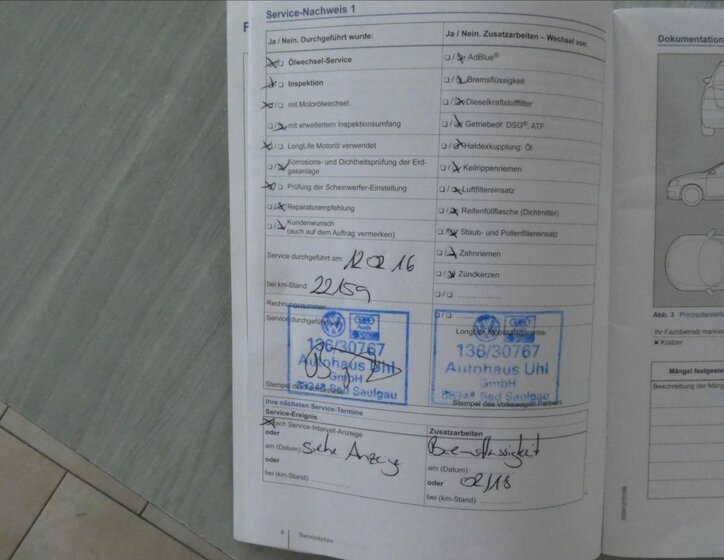 Service-Nachweis 1
Ja / Nein. Durchgeführt wurde:
Ölwechsel-Service
Inspektion
mit Motorölwechsel
mit erweitertem Inspektionsumfang
LongLife Motoröl verwendet
Korrosions- und Dichtheitsprüfung der Erd-
gasanlage
Prüfung der Scheinwerfer-Einstellung
Reparaturempfehlung
Kundenwunsch
(auch auf dem Auftrag vermerken)
Service durchgeführt am: 12 02 16
bei km-Stand: 22159
Rechnungsnummer:
Service durchgeführt
136/30767
Autohaus Uhl
GmbH
88348 Bad Saulgau
Stempel des
Ja / Nein. Zusatzarbeiten – Wechsel von:
AdBlue®
Bremsflüssigkeit
Dieselkraftstofffilter
Getriebeöl: DSG®, ATF
Haldexkupplung: Öl
Keilrippenriemen
Luftfiltereinsatz
Reifenfüllflasche (Dichtmittel)
Staub- und Pollenfiltereinsatz
Zahnriemen
Zündkerzen
LongLife Mobilitätsgarantie
136/30767
Autohaus Uhl
GmbH
88348 Bad Saulgau
Stempel des Volkswagen Partners
Ihre nächsten Service-Termine
Service-Ereignis
nach Service-Intervall-Anzeige
oder
am (Datum): siehe Anzeige
oder
bei (km-Stand):
Zusatzarbeiten
Bremsflüssigkeit
am (Datum):
oder 02/18
bei (km-Stand):
Serviceplan
Dokumentation
Abb. 3 Prinzipdarstell
Ihr Fachbetrieb markier
Kratzer
Mängel festgestel
Beschreibung der Mäng